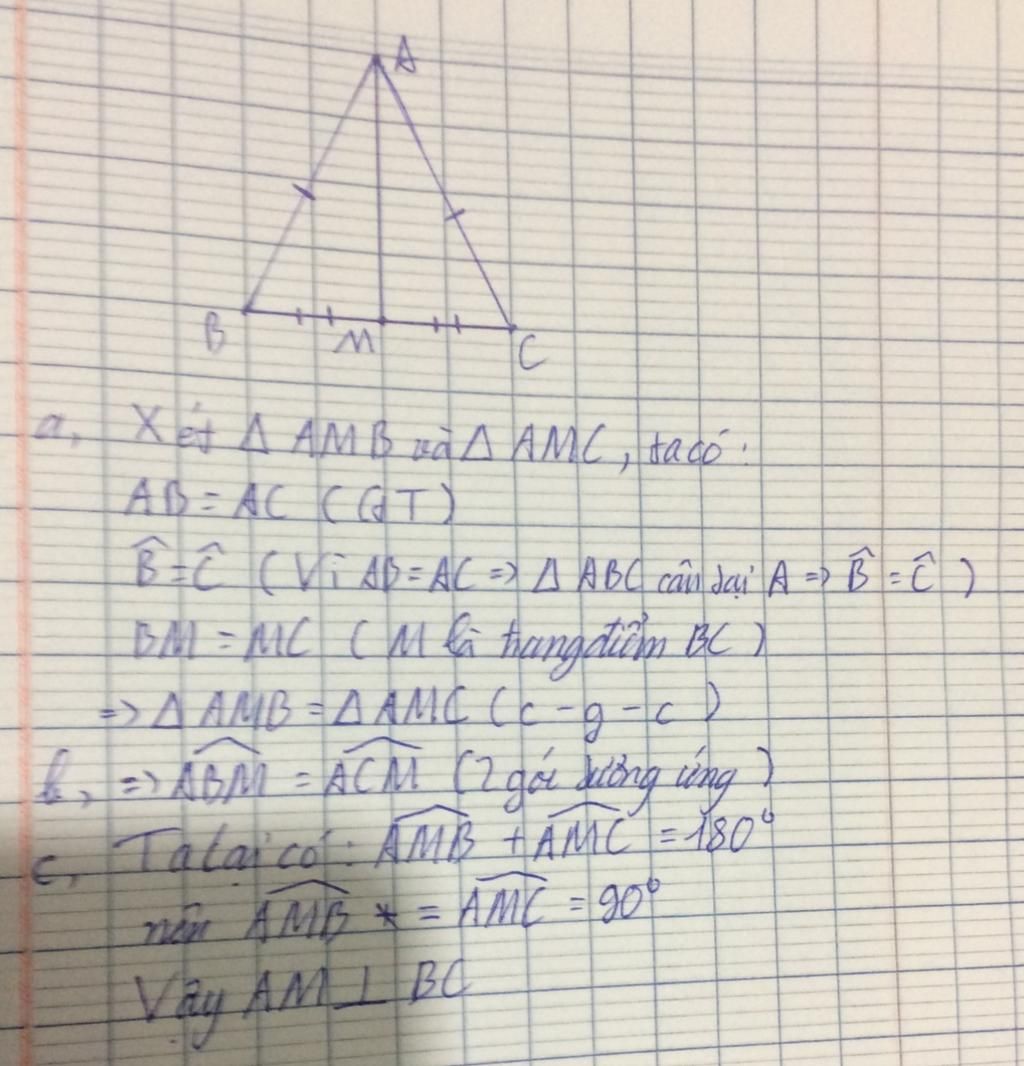 A
B M C
a, Xét Δ AMB và Δ AMC, ta có:
AB = AC (GT)
B̂ = Ĉ (Vì AB = AC => Δ ABC cân tại A => B̂ = Ĉ)
BM = MC (M là trung điểm BC)
=> Δ AMB = Δ AMC (c - g - c)
b, => \widehat{ABM} = \widehat{ACM} (2 gói tương ứng)
c, Ta lại có: \widehat{AMB} + \widehat{AMC} = 180°
nên \widehat{AMB} * = \widehat{AMC} = 90°
Vậy AM ⊥ BC